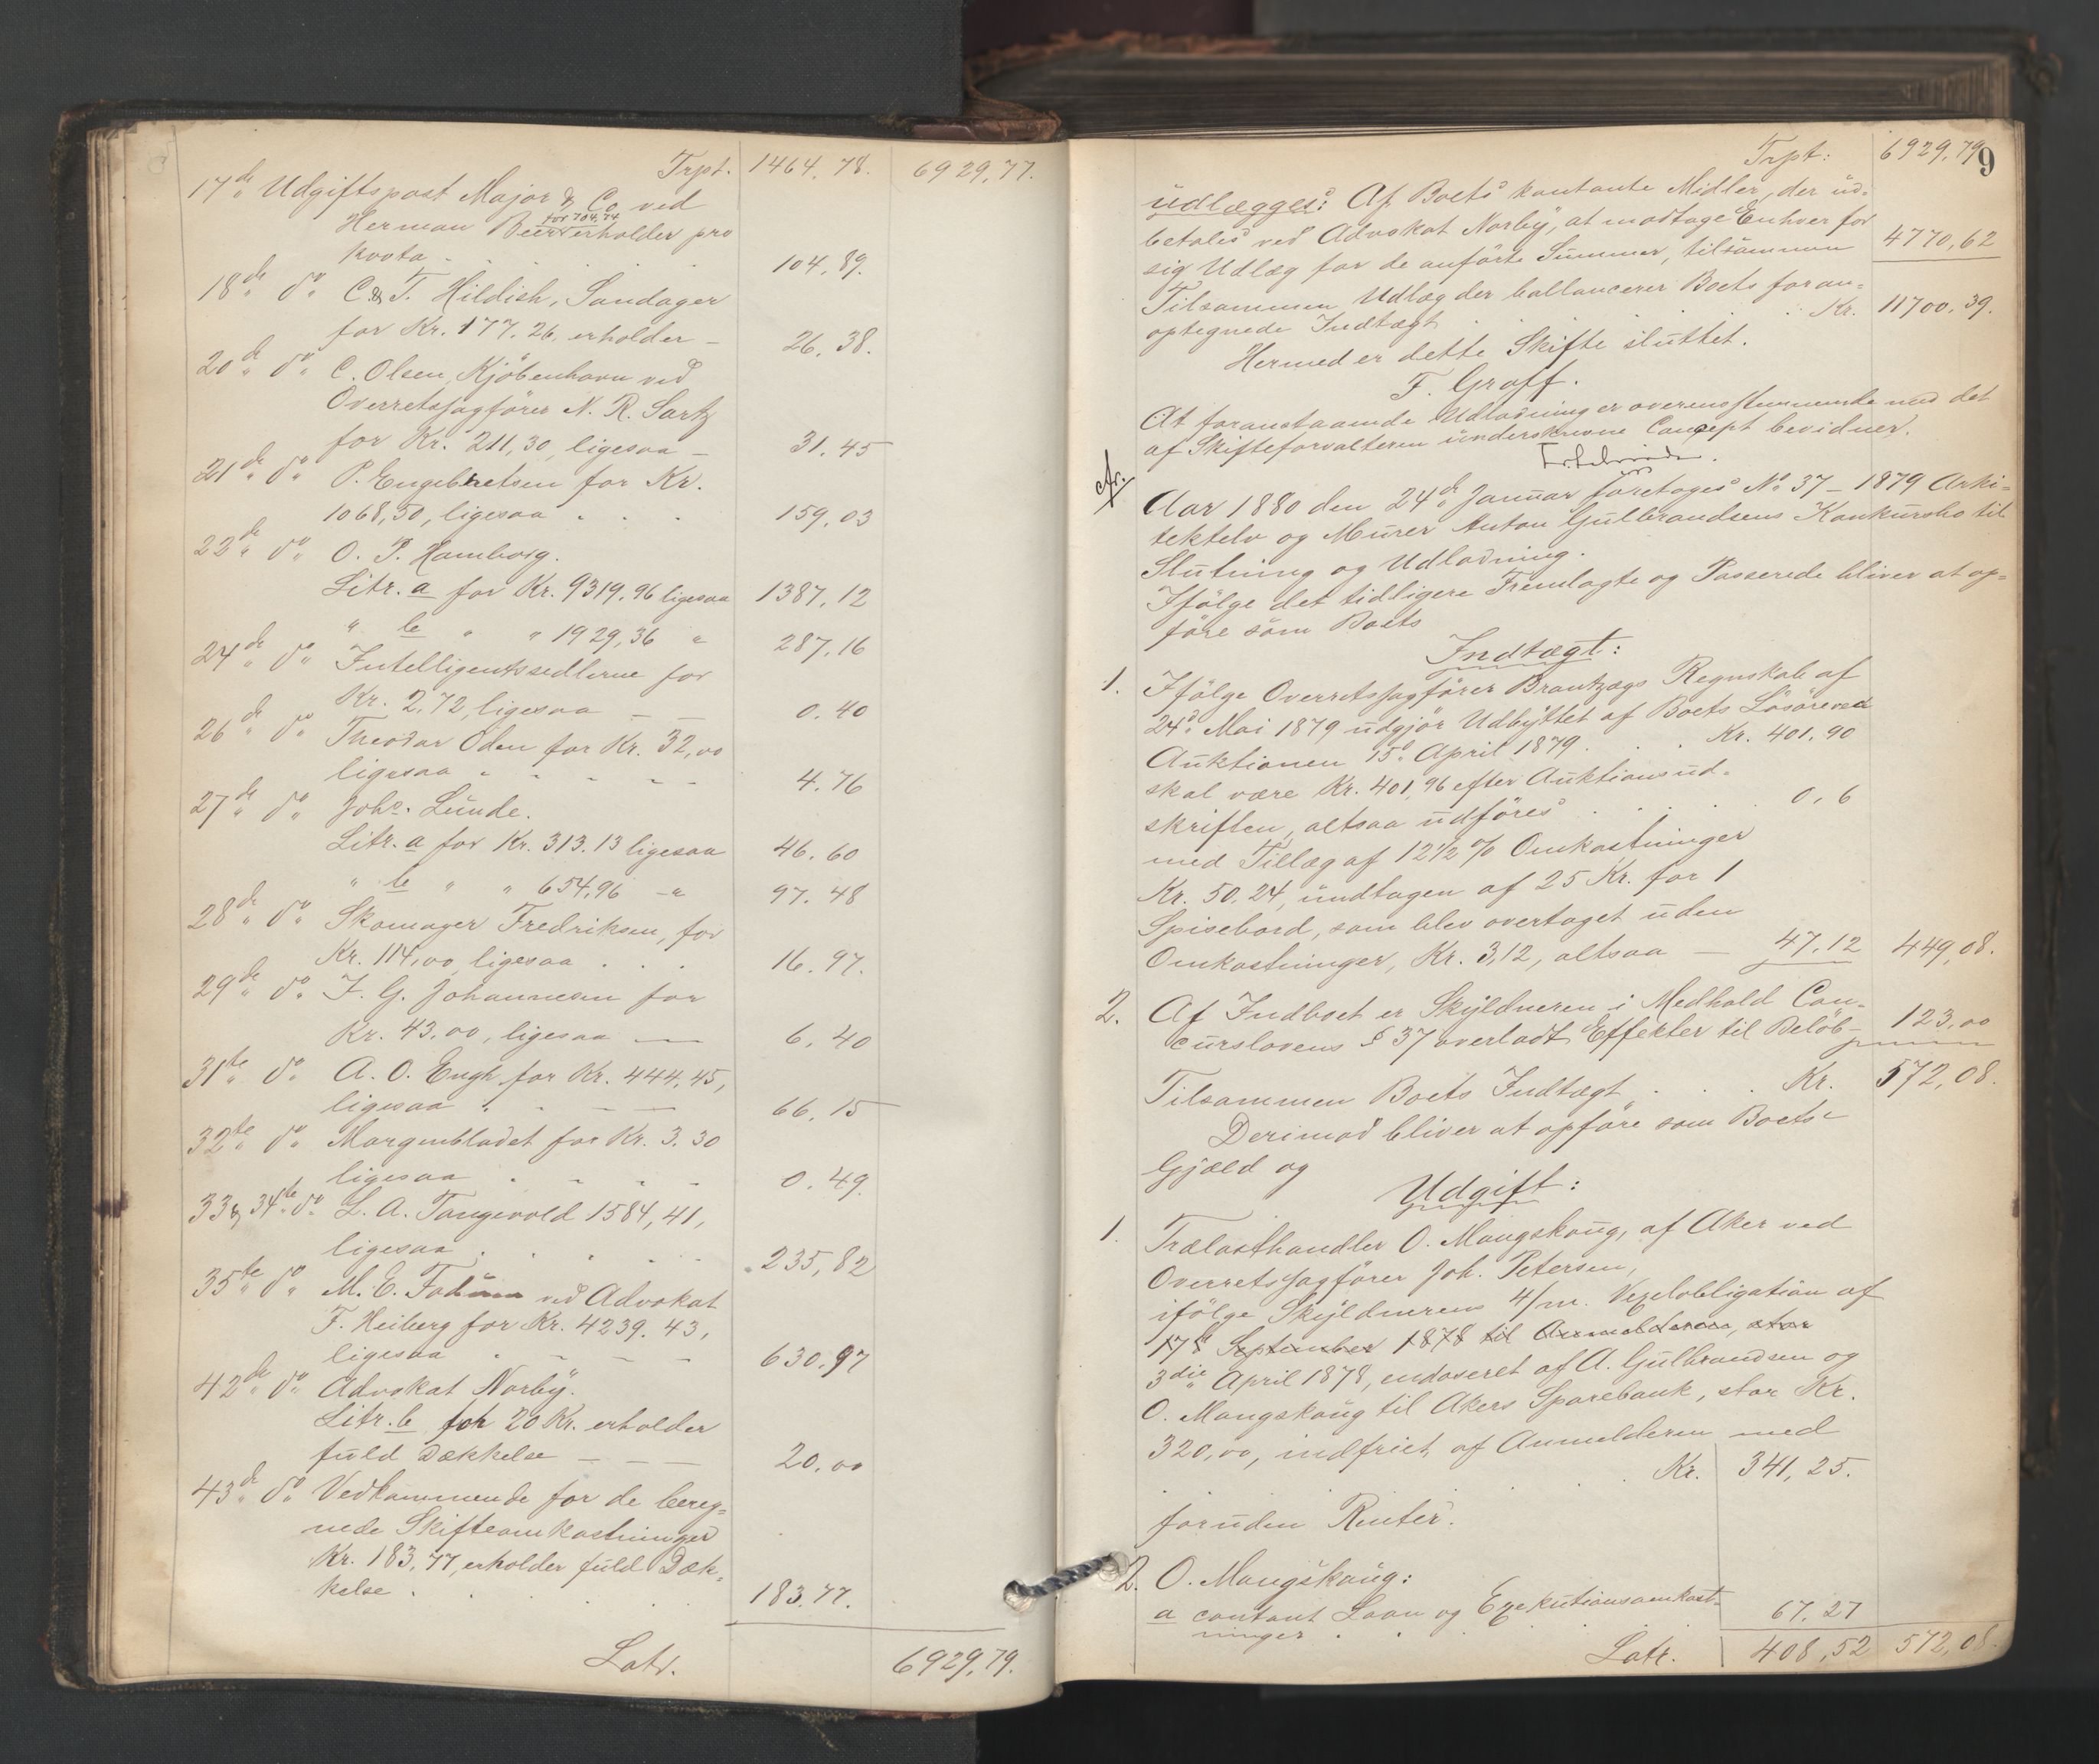 Trpt. 1464.78. 6929,77.
17de Udgiftspost Major & Co ved
for 704,74
Herman Beer erholder pro
kvota . . . . . 104.89.
18de do C & T. Hildish, Sandager
for Kr. 177.26, erholder — 26.38.
20de do C. Olsen, Kjöbenhavn ved
Overretssagfører N. R. Sartz
for Kr. 211,30, ligesaa — 31.45
21de do P. Engebretsen for Kr.
1068,50, ligesaa . . . 159,03
22de do O. P. Hamborg.
Litr. a for Kr. 9319.96 ligesaa 1387,12
" b " " 1929,36 " 287,16
24de do Intelligentssedlerne for
Kr. 2.72, ligesaa — — 0.40
26de do Theodor Oden for Kr. 32,00
ligesaa . . . . . 4.76
27de do Johs. Lunde.
Litr. a for Kr. 313.13 ligesaa 46.60
" b " " 654,96 —" 97.48
28de do Skomager Fredriksen, for
Kr. 114,00 ligesaa . . . 16.97.
29de do J. G. Johannesen for
Kr. 43.00, ligesaa — 6.40
31te do A. O. Engh for Kr. 444.45,
ligesaa . . . . 66.15
32te do Morgenbladet for Kr. 3.30
ligesaa . . . . 0.49
33 & 34te do L. A. Tangevold 1584,41,
ligesaa . . . . . 235,82
35te do M. E. ved Advokat
F. Heiberg for Kr. 4239.43,
ligesaa . . . . 630.97
42de do Advokat Norby.
Litr. b for 20 Kr. erholder
fuld Dækkelse — — — 20.00
43de do Vedkommende for de bereg=
nede Skifteomkostninger
Kr. 183.77, erholder fuld Dæk=
kelse . . . . . 183.77.
Latr. 6929,79.
Trpt: 6929,79
9
udlægges: Af Boets kontante Midler, der ud=
betales ved Advokat Norby, at modtage Enhver for
sig Udlæg for de anförte Summer, tilsammen 4770,62
Tilsammen Udlæg der ballancerer Boets foran=
optegnede Indtægt . . . . . Kr. 11700.39.
Hermed er dette Skifte sluttet.
F. Graff.
At foranstaaende Udlodning er overensstemmende med det
af Skifteforvalteren underskrevne Concept bevidner.
Aar 1880 den 24de Januar foretoges No 37 – 1879 Arki=
tektelv og Murer Anton Gulbrandsens Konkursbo til
Slutning og Udlodning.
Ifölge det tidligere Fremlagte og Passerede bliver at op=
före som Boets
Indtægt:
1. Ifölge Overretssagförer Brantzægs Regnskab af
24d. Mai 1879 udgjör Udbyttet af Boets Lösöre ved
Auktionen 15d. April 1879 . . . Kr. 401.90
skal være Kr. 401,96 efter Auktionsud=
skriften, altsaa udföres . . . . 0,6
med Tillæg af 12½ % Omkostninger
Kr. 50.24, undtagen af 25 Kr. for 1
Spisebord, som blev overtaget uden
Omkostninger, Kr. 3,12, altsaa — 47.12 449,08.
2. Af Indboet er Skyldneren i Medhold Con=
curslovens § 37 overladt Effekter til Belöb — 123,00
Tilsammen Boets Indtægt . . . Kr. 572,08.
Derimod bliver at opföre som Boets
Gjæld og
Udgift:
1. Trælasthandler O. Mangskoug, af Aker ved
Overretssagförer Joh. Petersen,
ifölge Skyldnerens 4/m. Vexelobligation af
17d September 1878 til Anmelderen, stor
3die April 1878, endoseret af A. Gulbrandsen og
O. Mangskoug til Akers Sparebank, stor Kr.
320,00, indfriet af Anmelderen med
. . . . Kr. 341,25.
foruden Renter.
2. O. Mangskoug:
a contant Laan og Exekutionsomkost=
ninger . . . . . 67.27
Latr. 408,52 572,08.